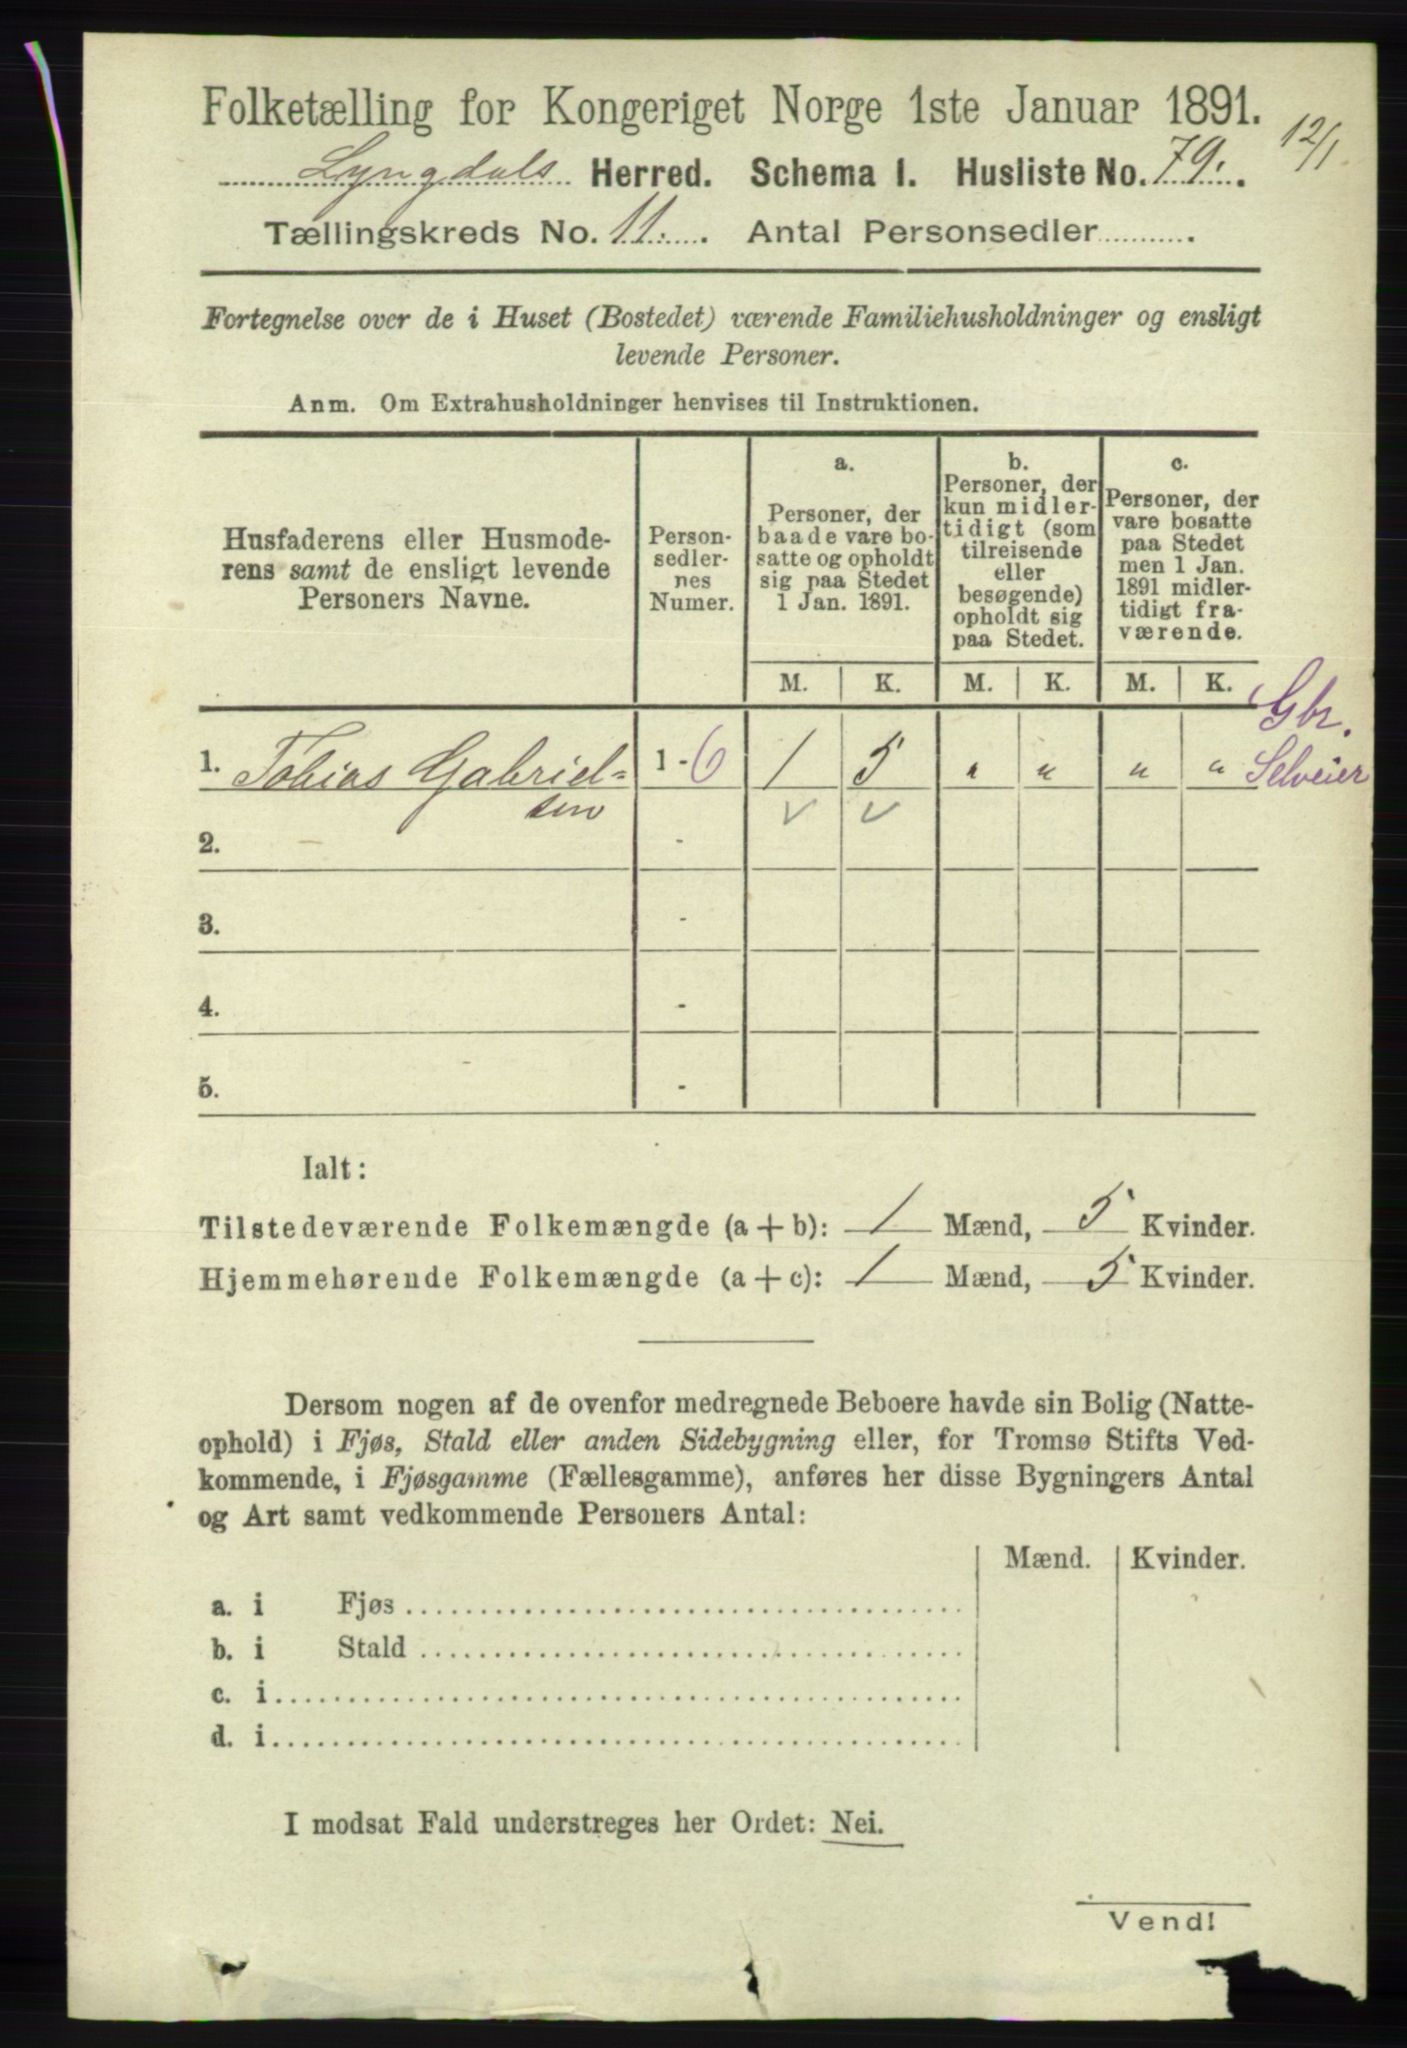 Folketælling for Kongeriget Norge 1ste Januar 1891.
12/1
Lyngdals Herred. Schema I. Husliste No. 79.
Tællingskreds No. 11. Antal Personsedler
Fortegnelse over de i Huset (Bostedet) værende Familiehusholdninger og ensligt
levende Personer.
Anm. Om Extrahusholdninger henvises til Instruktionen.
Husfaderens eller Husmode-
rens samt de ensligt levende
Personers Navne.
Person-
sedler-
nes
Numer.
a.
Personer, der
baade vare bo-
satte og opholdt
sig paa Stedet
1 Jan. 1891.
b.
Personer, der
kun midler-
tidigt (som
tilreisende
eller
besøgende)
opholdt sig
paa Stedet.
c.
Personer, der
vare bosatte
paa Stedet
men 1 Jan.
1891 midler-
tidigt fra-
værende.
M. K. M. K. M. K.
Gbr.
1. Tobias Gabriel= 1 - 6 1 5 " " " " Selveier
sen
2. -
3. -
4. -
5. -
Ialt:
Tilstedeværende Folkemængde (a + b): 1 Mænd, 5 Kvinder.
Hjemmehørende Folkemængde (a + c): 1 Mænd, 5 Kvinder.
Dersom nogen af de ovenfor medregnede Beboere havde sin Bolig (Natte-
ophold) i Fjøs, Stald eller anden Sidebygning eller, for Tromsø Stifts Ved-
kommende, i Fjøsgamme (Fællesgamme), anføres her disse Bygningers Antal
og Art samt vedkommende Personers Antal:
Mænd. Kvinder.
a. i Fjøs
b. i Stald
c. i
d. i
I modsat Fald understreges her Ordet: Nei.
Vend!